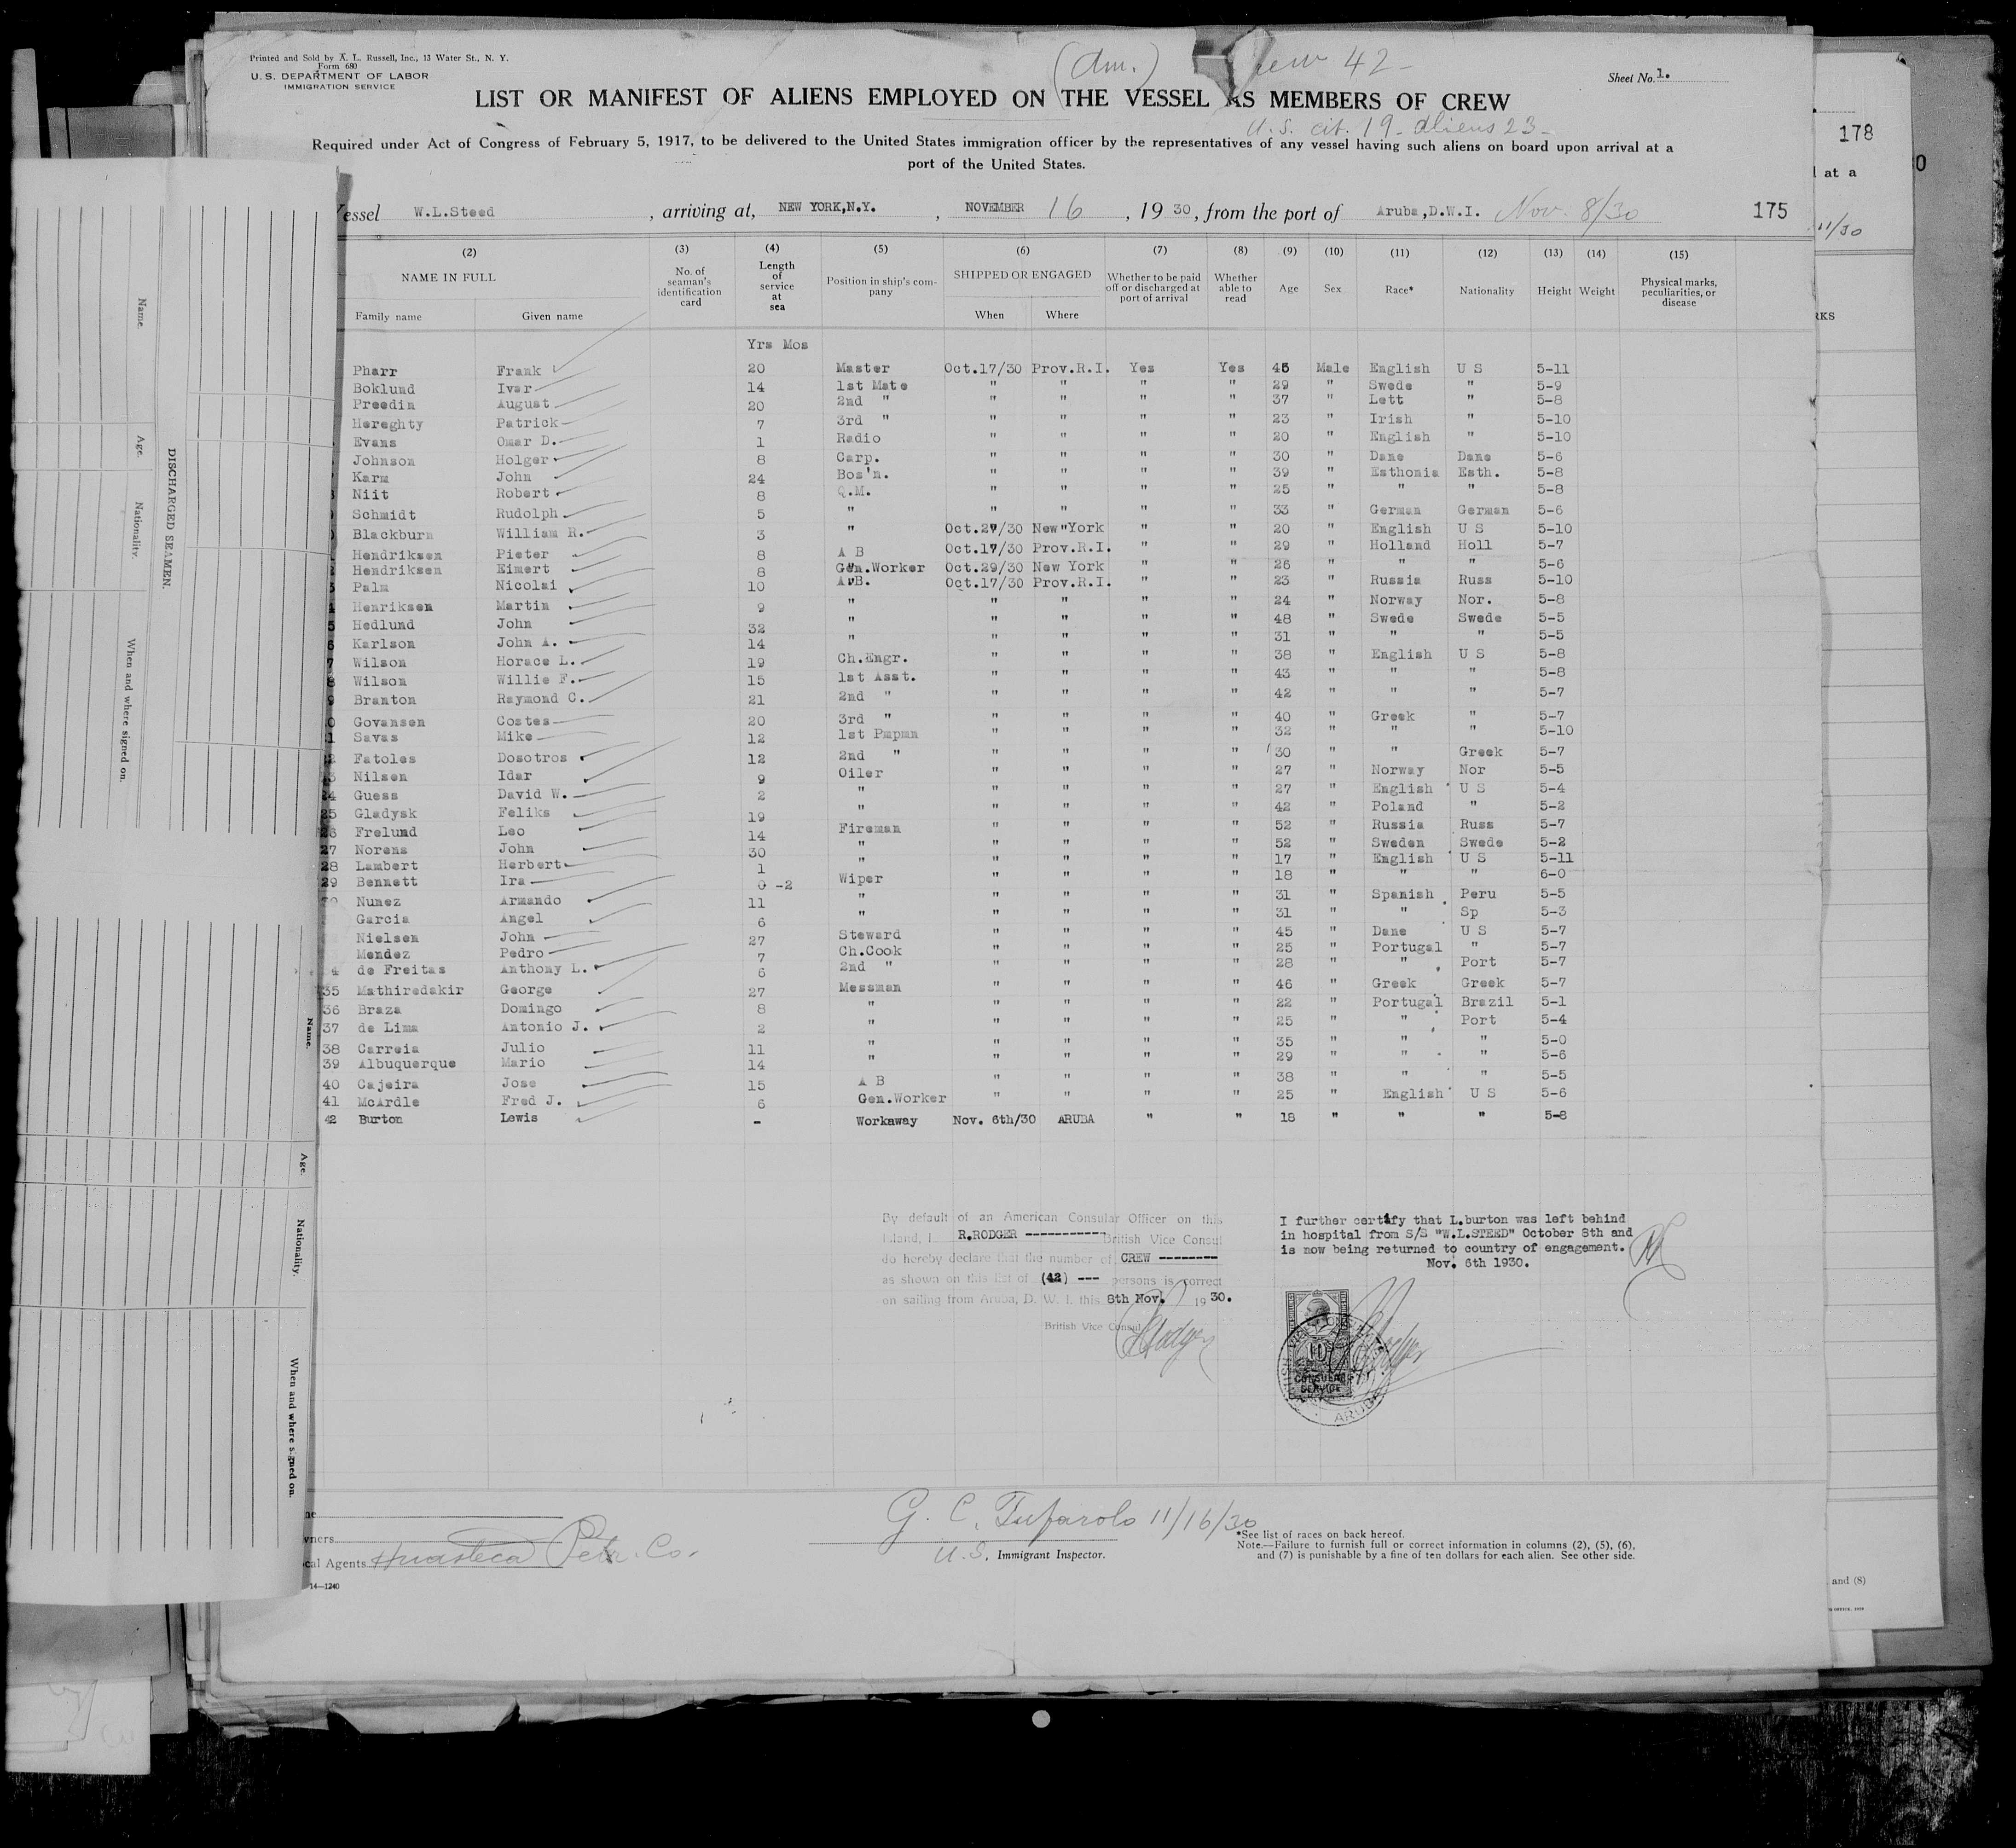 Printed and Sold by A. L. Russell, Inc., 13 Water St., N. Y.
Form 680
U. S. DEPARTMENT OF LABOR
IMMIGRATION SERVICE
(Am.) Crew 42-
Sheet No. 1.
LIST OR MANIFEST OF ALIENS EMPLOYED ON THE VESSEL AS MEMBERS OF CREW
U.S. cit. 19- aliens 23-
Required under Act of Congress of February 5, 1917, to be delivered to the United States immigration officer by the representatives of any vessel having such aliens on board upon arrival at a
port of the United States.
Vessel W.L.Steed, arriving at, NEW YORK,N.Y., NOVEMBER 16, 1930, from the port of Aruba,D.W.I. Nov. 8/30 175
(2) (3) (4) (5) (6) (7) (8) (9) (10) (11) (12) (13) (14) (15)
NAME IN FULL No. of seaman's identification card Length of service at sea Position in ship's company SHIPPED OR ENGAGED Whether to be paid off or discharged at port of arrival Whether able to read Age Sex Race* Nationality Height Weight Physical marks, peculiarities, or disease
Family name Given name When Where
Yrs Mos
Pharr Frank 20 Master Oct.17/30 Prov.R.I. Yes Yes 45 Male English U S 5-11
Boklund Ivar 14 1st Mate " " " " 29 " Swede " 5-9
Preedin August 20 2nd " " " " " 37 " Lett " 5-8
Hereghty Patrick 7 3rd " " " " " 23 " Irish " 5-10
Evans Omar D. 1 Radio " " " " 20 " English " 5-10
Johnson Holger 8 Carp. " " " " 30 " Dane Dane 5-6
Karm John 24 Bos'n. " " " " 39 " Esthonia Esth. 5-8
Niit Robert 8 Q.M. " " " " 25 " " " 5-8
Schmidt Rudolph 5 " " " " " 33 " German German 5-6
Blackburn William R. 3 " Oct.29/30 New York " " 20 " English U S 5-10
Hendriksen Pieter 8 A B Oct.17/30 Prov.R.I. " " 29 " Holland Holl 5-7
Hendriksen Eimert 8 Gen.Worker Oct.29/30 New York " " 26 " " " 5-6
Palm Nicolai 10 A.B. Oct.17/30 Prov.R.I. " " 23 " Russia Russ 5-10
Henriksen Martin 9 " " " " " 24 " Norway Nor. 5-8
5 Hedlund John 32 " " " " " 48 " Swede Swede 5-5
6 Karlson John A. 14 " " " " " 31 " " " 5-5
7 Wilson Horace L. 19 Ch.Engr. " " " " 38 " English U S 5-8
8 Wilson Willie F. 15 1st Asst. " " " " 43 " " " 5-8
9 Branton Raymond C. 21 2nd " " " " " 42 " " " 5-7
0 Govansen Costes 20 3rd " " " " " 40 " Greek " 5-7
1 Savas Mike 12 1st Pmpmn " " " " 32 " " " 5-10
2 Fatoles Dosotros 12 2nd " " " " " 30 " " Greek 5-7
3 Nilsen Idar 9 Oiler " " " " 27 " Norway Nor 5-5
24 Guess David W. 2 " " " " " 27 " English U S 5-4
25 Gladysk Feliks 19 " " " " " 42 " Poland " 5-2
26 Frelund Leo 14 Fireman " " " " 52 " Russia Russ 5-7
27 Norens John 30 " " " " " 52 " Sweden Swede 5-2
28 Lambert Herbert 1 " " " " " 17 " English U S 5-11
29 Bennett Ira 0 -2 Wiper " " " " 18 " " " 6-0
Nunez Armando 11 " " " " " 31 " Spanish Peru 5-5
Garcia Angel 6 " " " " " 31 " " Sp 5-3
Nielsen John 27 Steward " " " " 45 " Dane U S 5-7
Mendez Pedro 7 Ch.Cook " " " " 25 " Portugal " 5-7
4 de Freitas Anthony L. 6 2nd " " " " " 28 " " Port 5-7
35 Mathiredakir George 27 Messman " " " " 46 " Greek Greek 5-7
36 Braza Domingo 8 " " " " " 22 " Portugal Brazil 5-1
37 de Lima Antonio J. 2 " " " " " 25 " " Port 5-4
38 Carreia Julio 11 " " " " " 35 " " " 5-0
39 Albuquerque Mario 14 " " " " " 29 " " " 5-6
40 Cajeira Jose 15 A B " " " " 38 " " " 5-5
41 McArdle Fred J. 6 Gen.Worker " " " " 25 " English U S 5-6
42 Burton Lewis - Workaway Nov. 6th/30 ARUBA " " 18 " " " 5-8
By default of an American Consular Officer on this
Island, I R.RODGER ----------- British Vice Consul
do hereby declare that the number of CREW --------
as shown on this list of (42) --- persons is correct
on sailing from Aruba, D. W. I. this 8th Nov. 1930.
British Vice Consul
I further certify that L.burton was left behind
in hospital from S/S "W.L.STEED" October 8th and
is now being returned to country of engagement.
Nov. 6th 1930.
CONSULAR
SERVICE
ARUBA
G. C. Tufarolo 11/16/30
U.S. Immigrant Inspector.
Huasteca Petr. Co.
*See list of races on back hereof.
Note.—Failure to furnish full or correct information in columns (2), (5), (6),
and (7) is punishable by a fine of ten dollars for each alien. See other side.
14—1240
DISCHARGED SEAMEN.
Name. Age. Nationality. When and where signed on.
Name. Age. Nationality. When and where signed on.
178
at a
11/30
and (8)